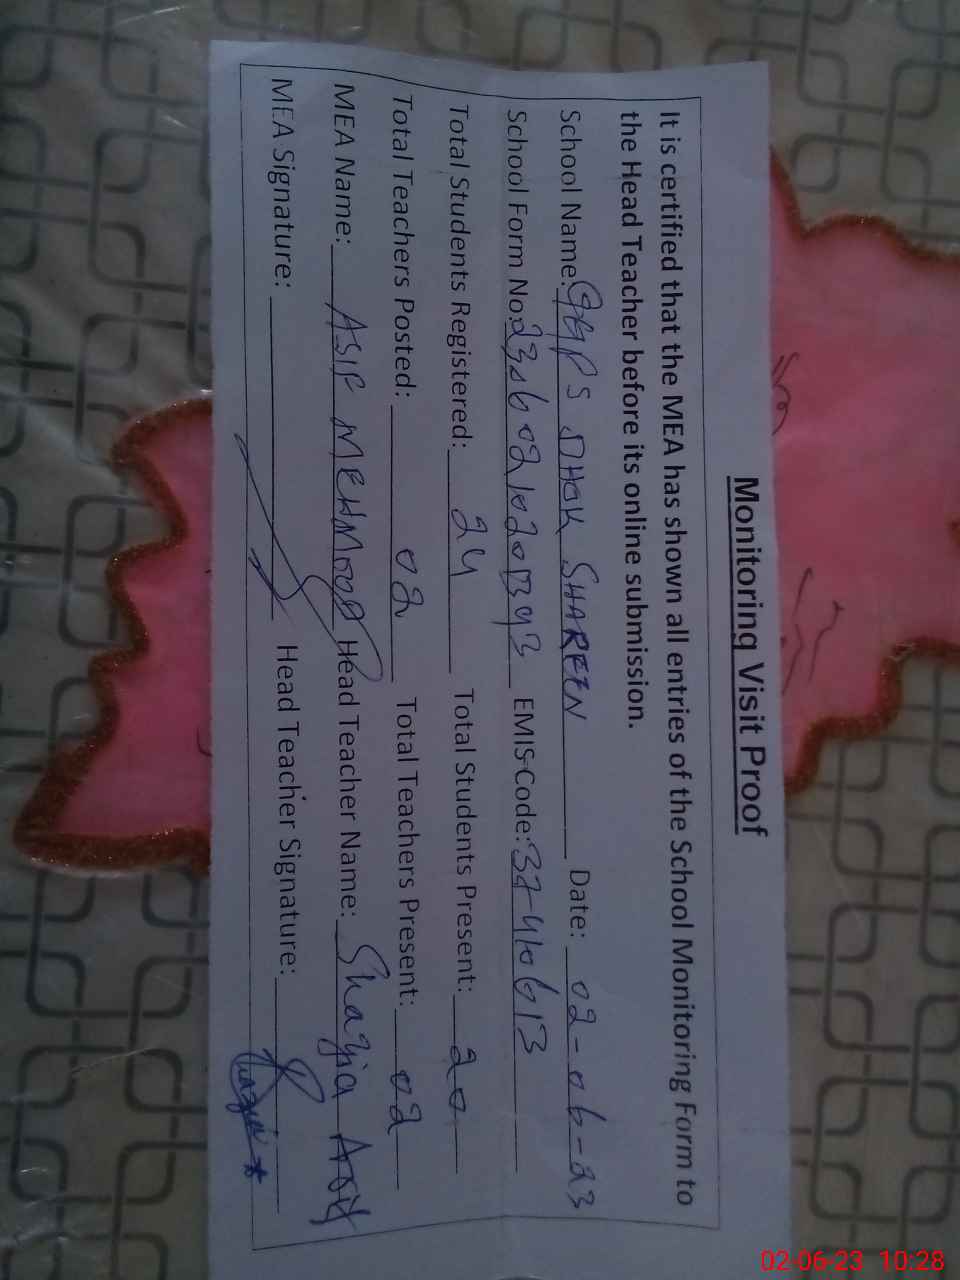 Monitoring Visit Proof
It is certified that the MEA has shown all entries of the School Monitoring Form to
the Head Teacher before its online submission.
School Name: GGPS DHOK SHAREEN Date: 02-06-23
School Form No: EMIS Code: 37410613
Total Students Registered: 24 Total Students Present: 20
Total Teachers Posted: 02 Total Teachers Present: 02
MEA Name: ASIF MEHMOOD Head Teacher Name: Shazia
MEA Signature: Head Teacher Signature:
02-06-23 10:28